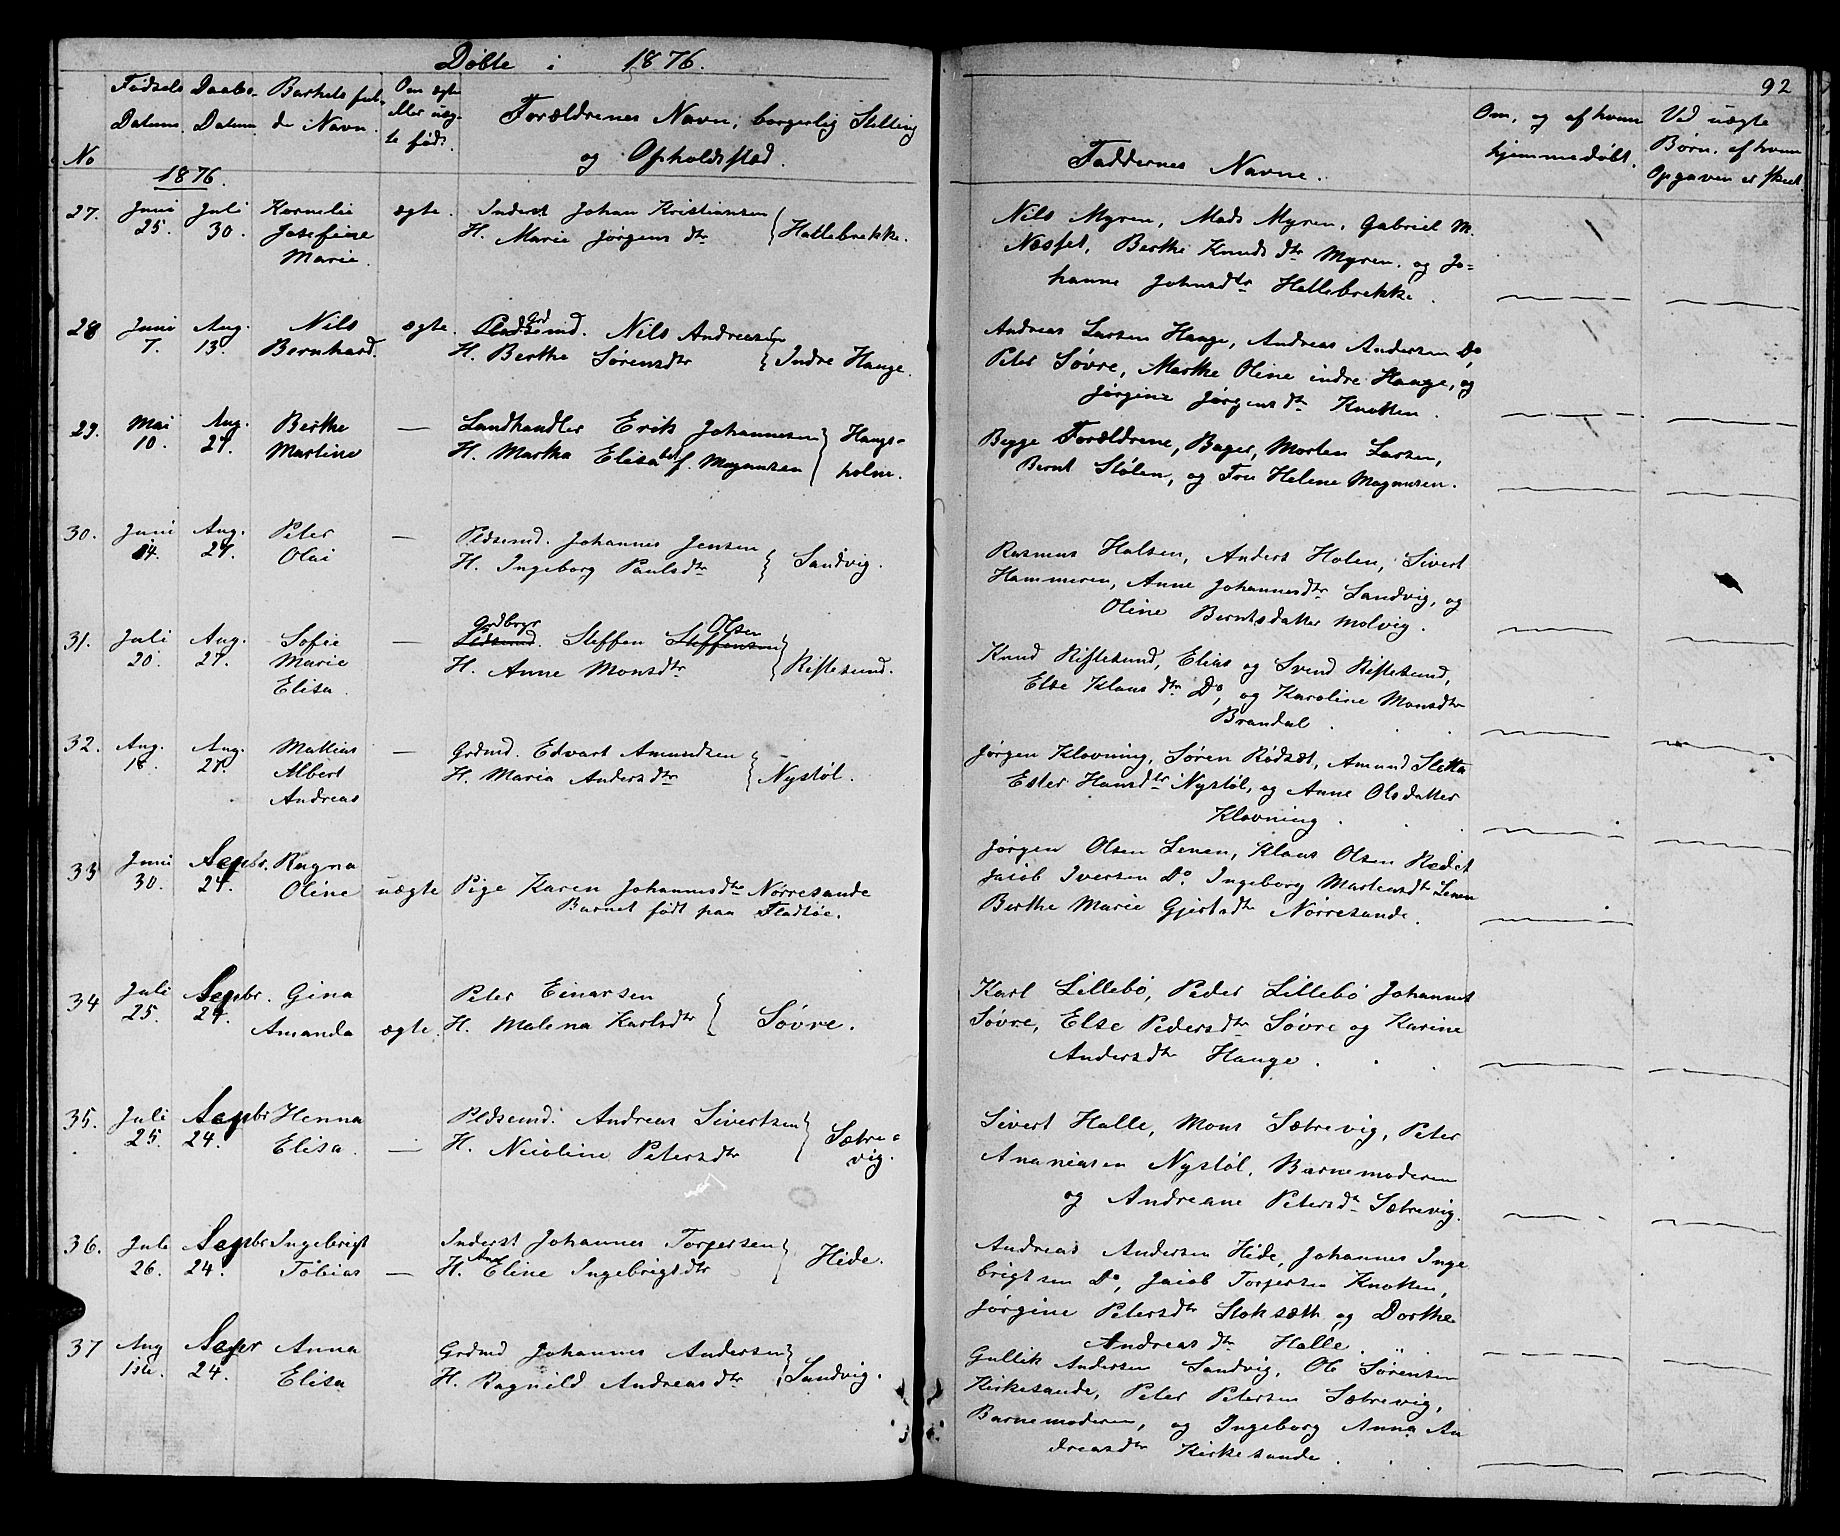 Døbte i 1876.
92
No
Fødsels Datum
Daabs- Datum
Barnets fulde Navn.
Om ægte eller uægte født.
Forældrenes Navn, borgerlig Stilling og Opholdssted.
Faddernes Navne.
Om, og af hvem hjemmedøbt.
Ved uægte Børn, af hvem Opgaven er skeet
1876.
27. Juni 25. Juli 30. Kornelie Josefine Marie. ægte. Inderst Johan Kristiansen
H. Marie Jørgensdtr } Hallebrekke.
Nils Myren, Mads Myren, Gabriel M.
Næsset, Berthe Knudsdtr Myren, og Jo-
hanne Johnsdtr Hallebrekke.
28 Juni 7. Aug. 13. Nils Bernhard. ægte. Pladsemd. Grd Nils Andreasen
H. Berthe Sørensdtr } Indre Hauge.
Andreas Larsen Hauge, Andreas Andersen Do
Peter Søvre, Marthe Oline indre Hauge, og
Jørgine Jørgensdtr Knotten.
29. Mai 10. Aug. 27. Berthe Martine — Landhandler Erik Johannesen
H. Martha Elisabet f. Magnusen } Haugs-
holm.
Begge Forældrene, Bager, Morten Larsen,
Bernt Stølen, og Fru Helene Magnusen.
30. Juni 14. Aug. 27. Peter Olai — Pldsemd. Johannes Jensen
H. Ingeborg Paulsdtr } Sandvig.
Rasmus Halsen, Anders Holen, Sivert
Hammeren, Anne Johannesdtr Sandvig, og
Oline Berntsdatter Molvig.
31. Juli 20. Aug. 27. Sofie Marie Elisa. — Grdbrgr Pldsemd. Steffen Steffensen Olsen
H. Anne Monsdtr } Riflesund.
Knud Riflesund, Elias og Svend Riflesund,
Else Klausdtr Do, og Karoline Monsdtr
Brandal.
32. Aug. 18. Aug. 27. Mathias Albert Andreas — Grdmd. Edvart Amundsen
H. Maria Andersdtr } Nystøl.
Jørgen Klovning, Søren Rødsæt, Amund Sletta
Ester Hansdtr Nystøl, og Anne Olsdatter
Klovning.
33 Juni 30. Septbr. 24. Ragna Oline uægte Pige Karen Johannesdtr Nørresande
Barnet født paa Fladtøe.
Jørgen Olsen Lenen, Klaus Olsen Rødet
Jacob Iversen Do. Ingeborg Martensdtr Lenen
Berthe Marie Gjertsdtr Nørresande.
34 Juli 25. Septbr. 24. Gina Amanda ægte. Peter Einarsen
H. Malena Karlsdtr } Søvre.
Karl Lillebø, Peder Lillebø Johannes
Søvre, Else Pedersdtr Søvre og Karine
Andersdtr Hauge.
35. Juli 25. Septbr 24. Henna Elisa. — Pldsemd. Andreas Sivertsen
H. Nicoline Petersdtr } Sætre-
vig.
Sivert Halle, Mons Sætrevig, Peter
Ananiasen Nystøl, Barnemoderen
og Andreane Petersdtr Sætrevig.
36. Juli 26. Septbr 24. Ingebrigt Tobias — Inderst Johannes Torgersen
H. Ane Eline Ingebrigtsdtr } Hide.
Andreas Andersen Hide, Johannes Inge
brigtsen Do, Jacob Torgersen Knotten,
Jørgine Petersdtr Stoksæth og Dorthe
Andreasdtr Halle.
37 Aug 1ste. Sepr 24. Anna Elisa Grdmd Johannes Andersen
H. Ragnild Andreasdtr } Sandvig.
Gullik Andersen Sandvig, Ole Sørensen
Kirkesande, Peter Petersen Sætrevig,
Barnemoderen, og Ingeborg Anna An
dreasdtr Kirkesande.